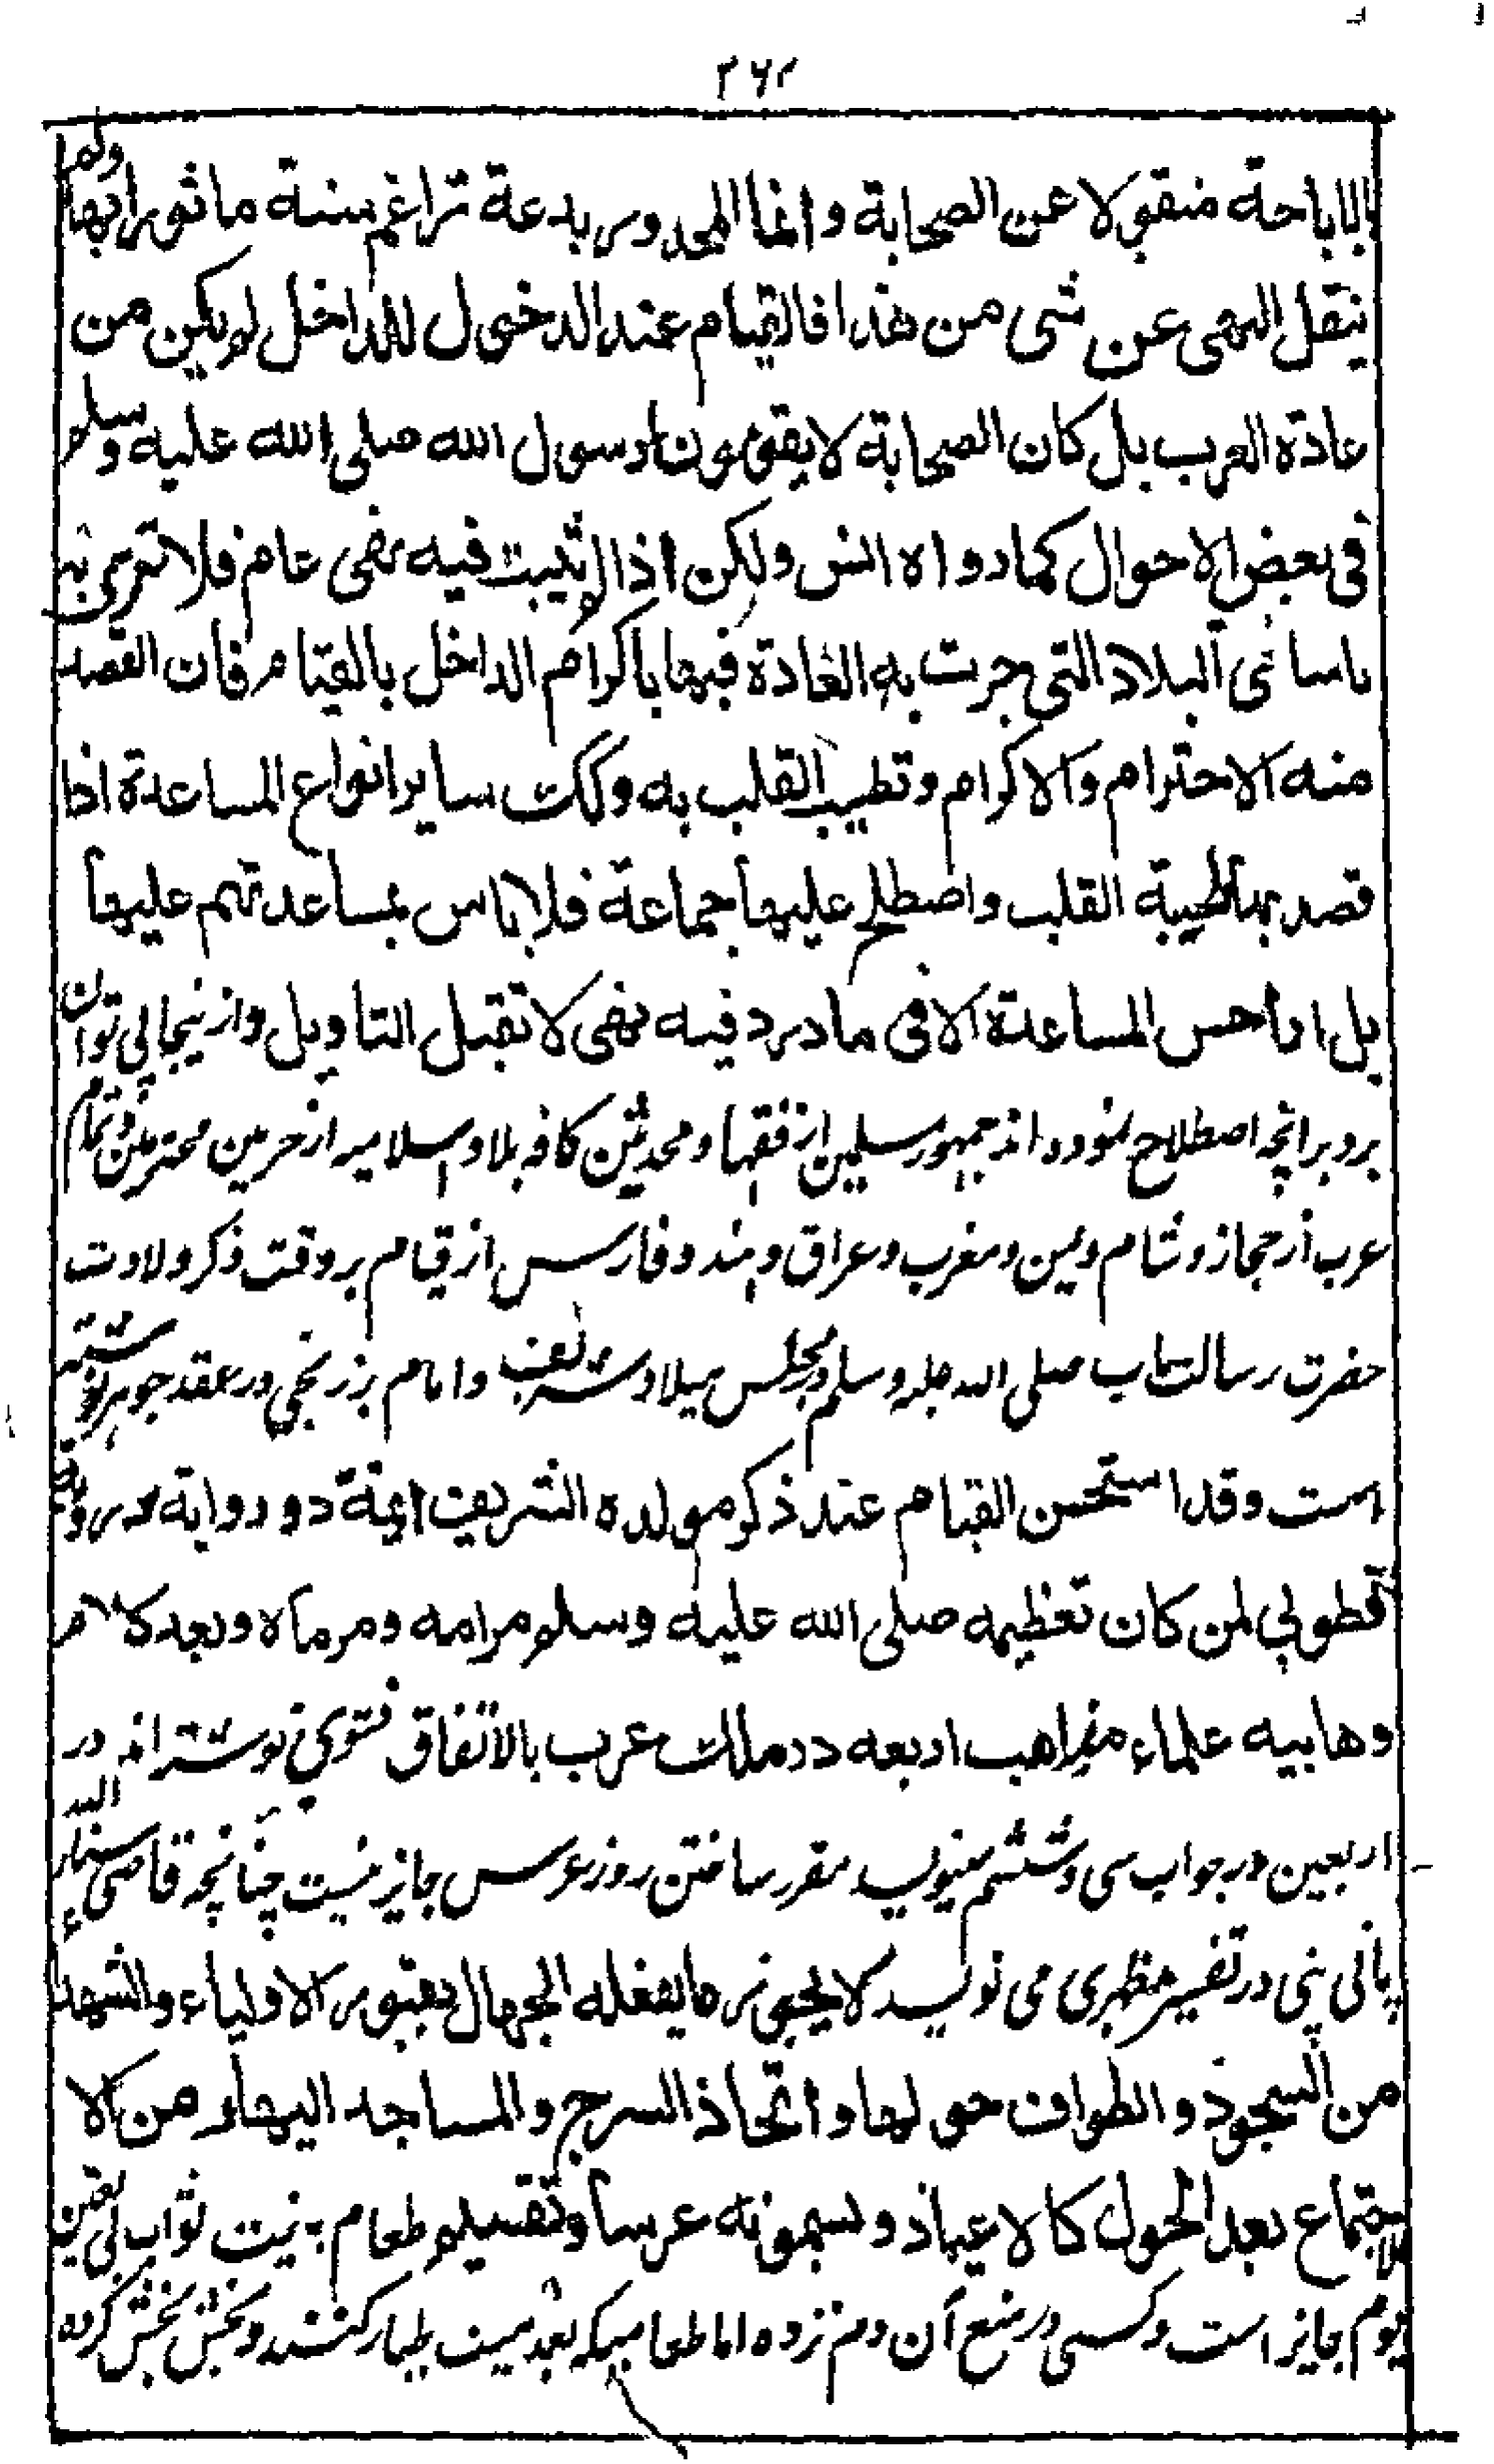 ۳۶۲
بالاباحة منقولا عن الصحابة وانما المحدور بدعة تراغم سنة ماثورا بها ولم
ينقل النهى عن شى من هذا فالقيام عند الدخول للداخل لم يكن من
عادة العرب بل كان الصحابة لا يقومون لرسول الله صلى الله عليه وسلم
فى بعض الاحوال كما رواه انس ولكن اذا لم يثبت فيه نهى عام فلا نرى به
باسا فى البلاد التى جرت به العادة فيها باكرام الداخل بالقيام فان القصد
منه الاحترام والاكرام وتطييب القلب به وكك ساير انواع المساعدة اذا
قصد بها طيبة القلب واصطلح عليها جماعة فلا باس بمساعدتهم عليها
بل الاحسن المساعدة الا فى ما درد فيه نهى لا تقبل التاويل واز ينجا پى توان
برد بر انچه اصطلاح نموده اند جمهور مسلمين از فقها و محدثين كافه بلاد اسلاميه از حرمين محترمين و تمام
عرب از حجاز و شام و يمن و مغرب و عراق و هند و فارس از قيام بر وقت ذكر ولادت
حضرت رسالتماب صلى الله عليه وسلم در مجلس ميلاد شريف و امام برزنجى در عقد جوهر نوشته
است وقد استحسن القيام عند ذكر مولده الشريف ايمة ذو رواية وروية
فطوبى لمن كان تعظيمه صلى الله عليه وسلم مرامه ومرماه وبعد كلام
وهابيه علماء مذاهب اربعه در ملك عرب بالاتفاق فتوى نوشته اند در
اربعين در جواب سى و ششم مينويسد مقرر ساختن روز عرس جايز نيست چنانچه قاضى ثناء الله
پانى پتى در تفسير مظهرى مى نويسد لا يجوز ما يفعله الجهال بقبور الاولياء والشهداء
من السجود والطواف حولها واتخاذ السرج والمساجد اليها ومن الا
لاجتماع بعد الحول كالاعياد ويسمونه عرسا وتقسيم طعام به نيت ثواب بى تعين
يوم جايز است و كسى در منع آن دم نزده اما طعاميكه بعد ميت طيار كنند و بخش بخش كرده